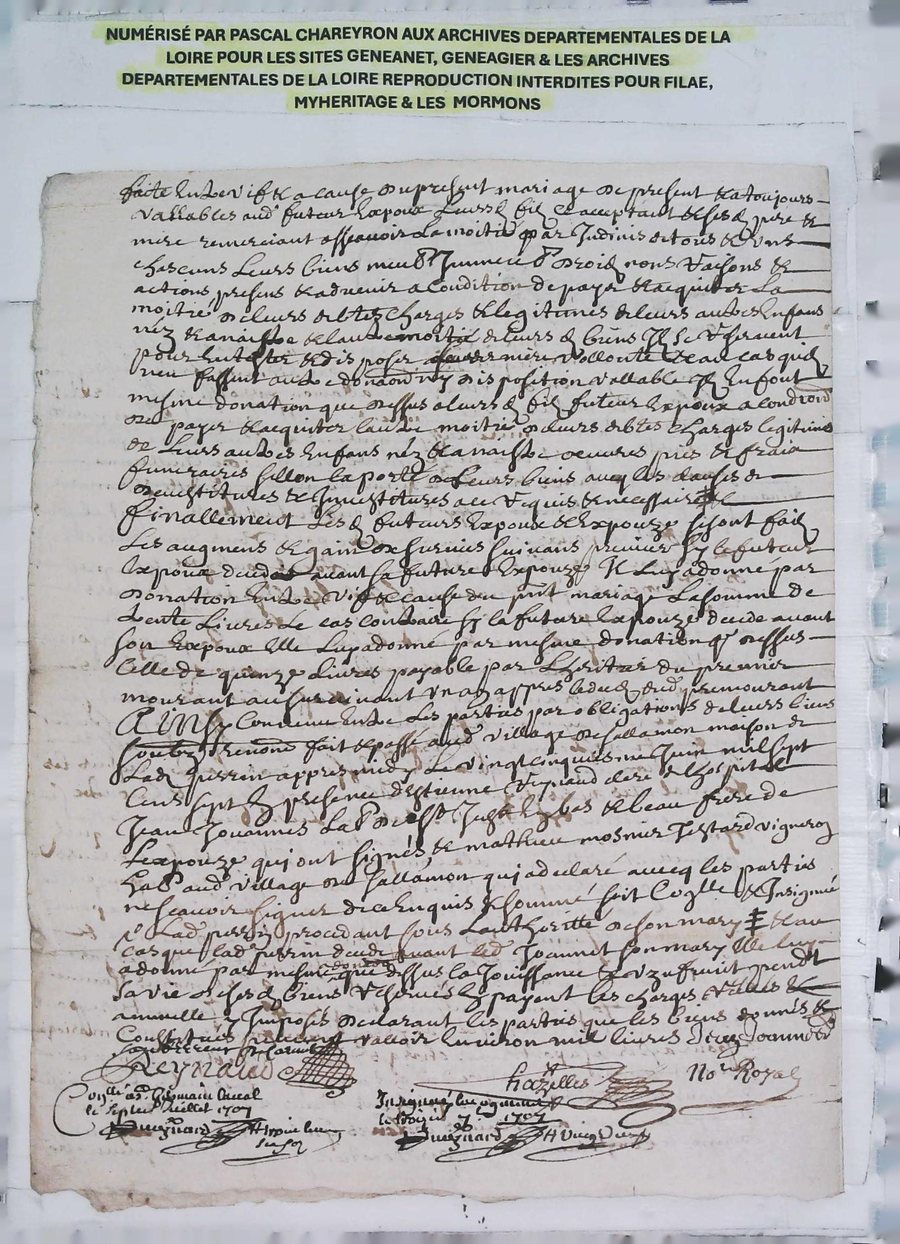 NUMÉRISÉ PAR PASCAL CHAREYRON AUX ARCHIVES DEPARTEMENTALES DE LA
LOIRE POUR LES SITES GENEANET, GENEAGIER & LES ARCHIVES
DEPARTEMENTALES DE LA LOIRE REPRODUCTION INTERDITES POUR FILAE,
MYHERITAGE & LES MORMONS
faite entre vif & a cause du present mariage de present & a toujours
vallables aud futeur expoux leurd fil acceptant & sesd pere &
mere remerciant assavoir la moitié par Indivis de tous & uns
chascuns leurs biens meubles Immeubles droid noms & raisons &
actions presens & advenir a condition de payer & acquiter la
moitié de leurs debtes charges & legitimes de leurs autres enfans
nez & a naistre & l'autre moitié de leurs d biens Ils se reservent
pour en & disposer a leur derniere vollonté & au cas quils
neu fassent autre donaon ny disposition vallable Ils en font
mesme donation que dessus a leurd fil futeur expoux a condition
de payer & acquiter l'autre moitié de leurs debtes charges legitimes
de leurs autres enfans néz & a naistre oeuvres pies & frais
funeraires sellon la porté de leurs biens avecq les clauses de
devestitures & Investitures a ce requis & necessaire
finallement Lesd futeurs expoux & expouze se sont fait
les augmens & gains de survies suivans premier sy le futeur
expoux decede avant sa future expouze Il luy a donne par
donation entre vif & cause du pnt mariage la somme de
trente Livres le cas contraire sy la future expouze decede avant
son expoux elle luy a donné par mesme donation q dessus
celle de quinze livres payable par l'heritier du premier
mourant au survivant un an appres le deced dud premourant
Ainsy Convenu entre les parties par obligations de leurs biens
fait & passé aud village de sallamon maison de
Lad perrin appres midy le vingt cinquiesme Juin mil sept
cens sept en presence d'Estienne Reynaud clerc de l'hospital
Jean Jouannis beau frere de
L'expouze qui ont signés & mathieu mosnier vigneron
hab aud village de sallamon qui a declaré avecq les parties
ne scavoir signer de ce enquis & sommé soit Coglle & Insignué
Lad perrin procedant sous l'authoritté de son mary & au
cas que lad perrin decede avant led Joannot son mary elle luy
a donné par mesme donaon que dessus la Jouissance & uzufruit pendt
sa vie de sesd biens reservés en payent les charges
annuelle Imposés declarant les parties que les biens donnés &
Constitués peuvent valloir environ mil livres
REYNAUD
Chazelles No Royal
le sept Juillet 1707
Insignué
1707